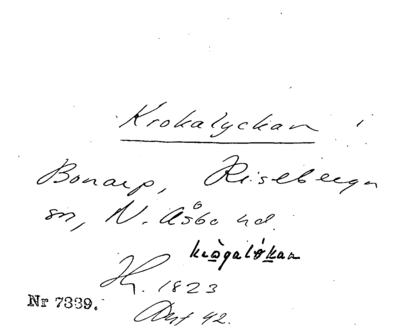 Krokalyckan
Bonarp, Riseberga
sn, N. Åsbo hd.
krògalókan
H. 1823
Nr 7339.
92.